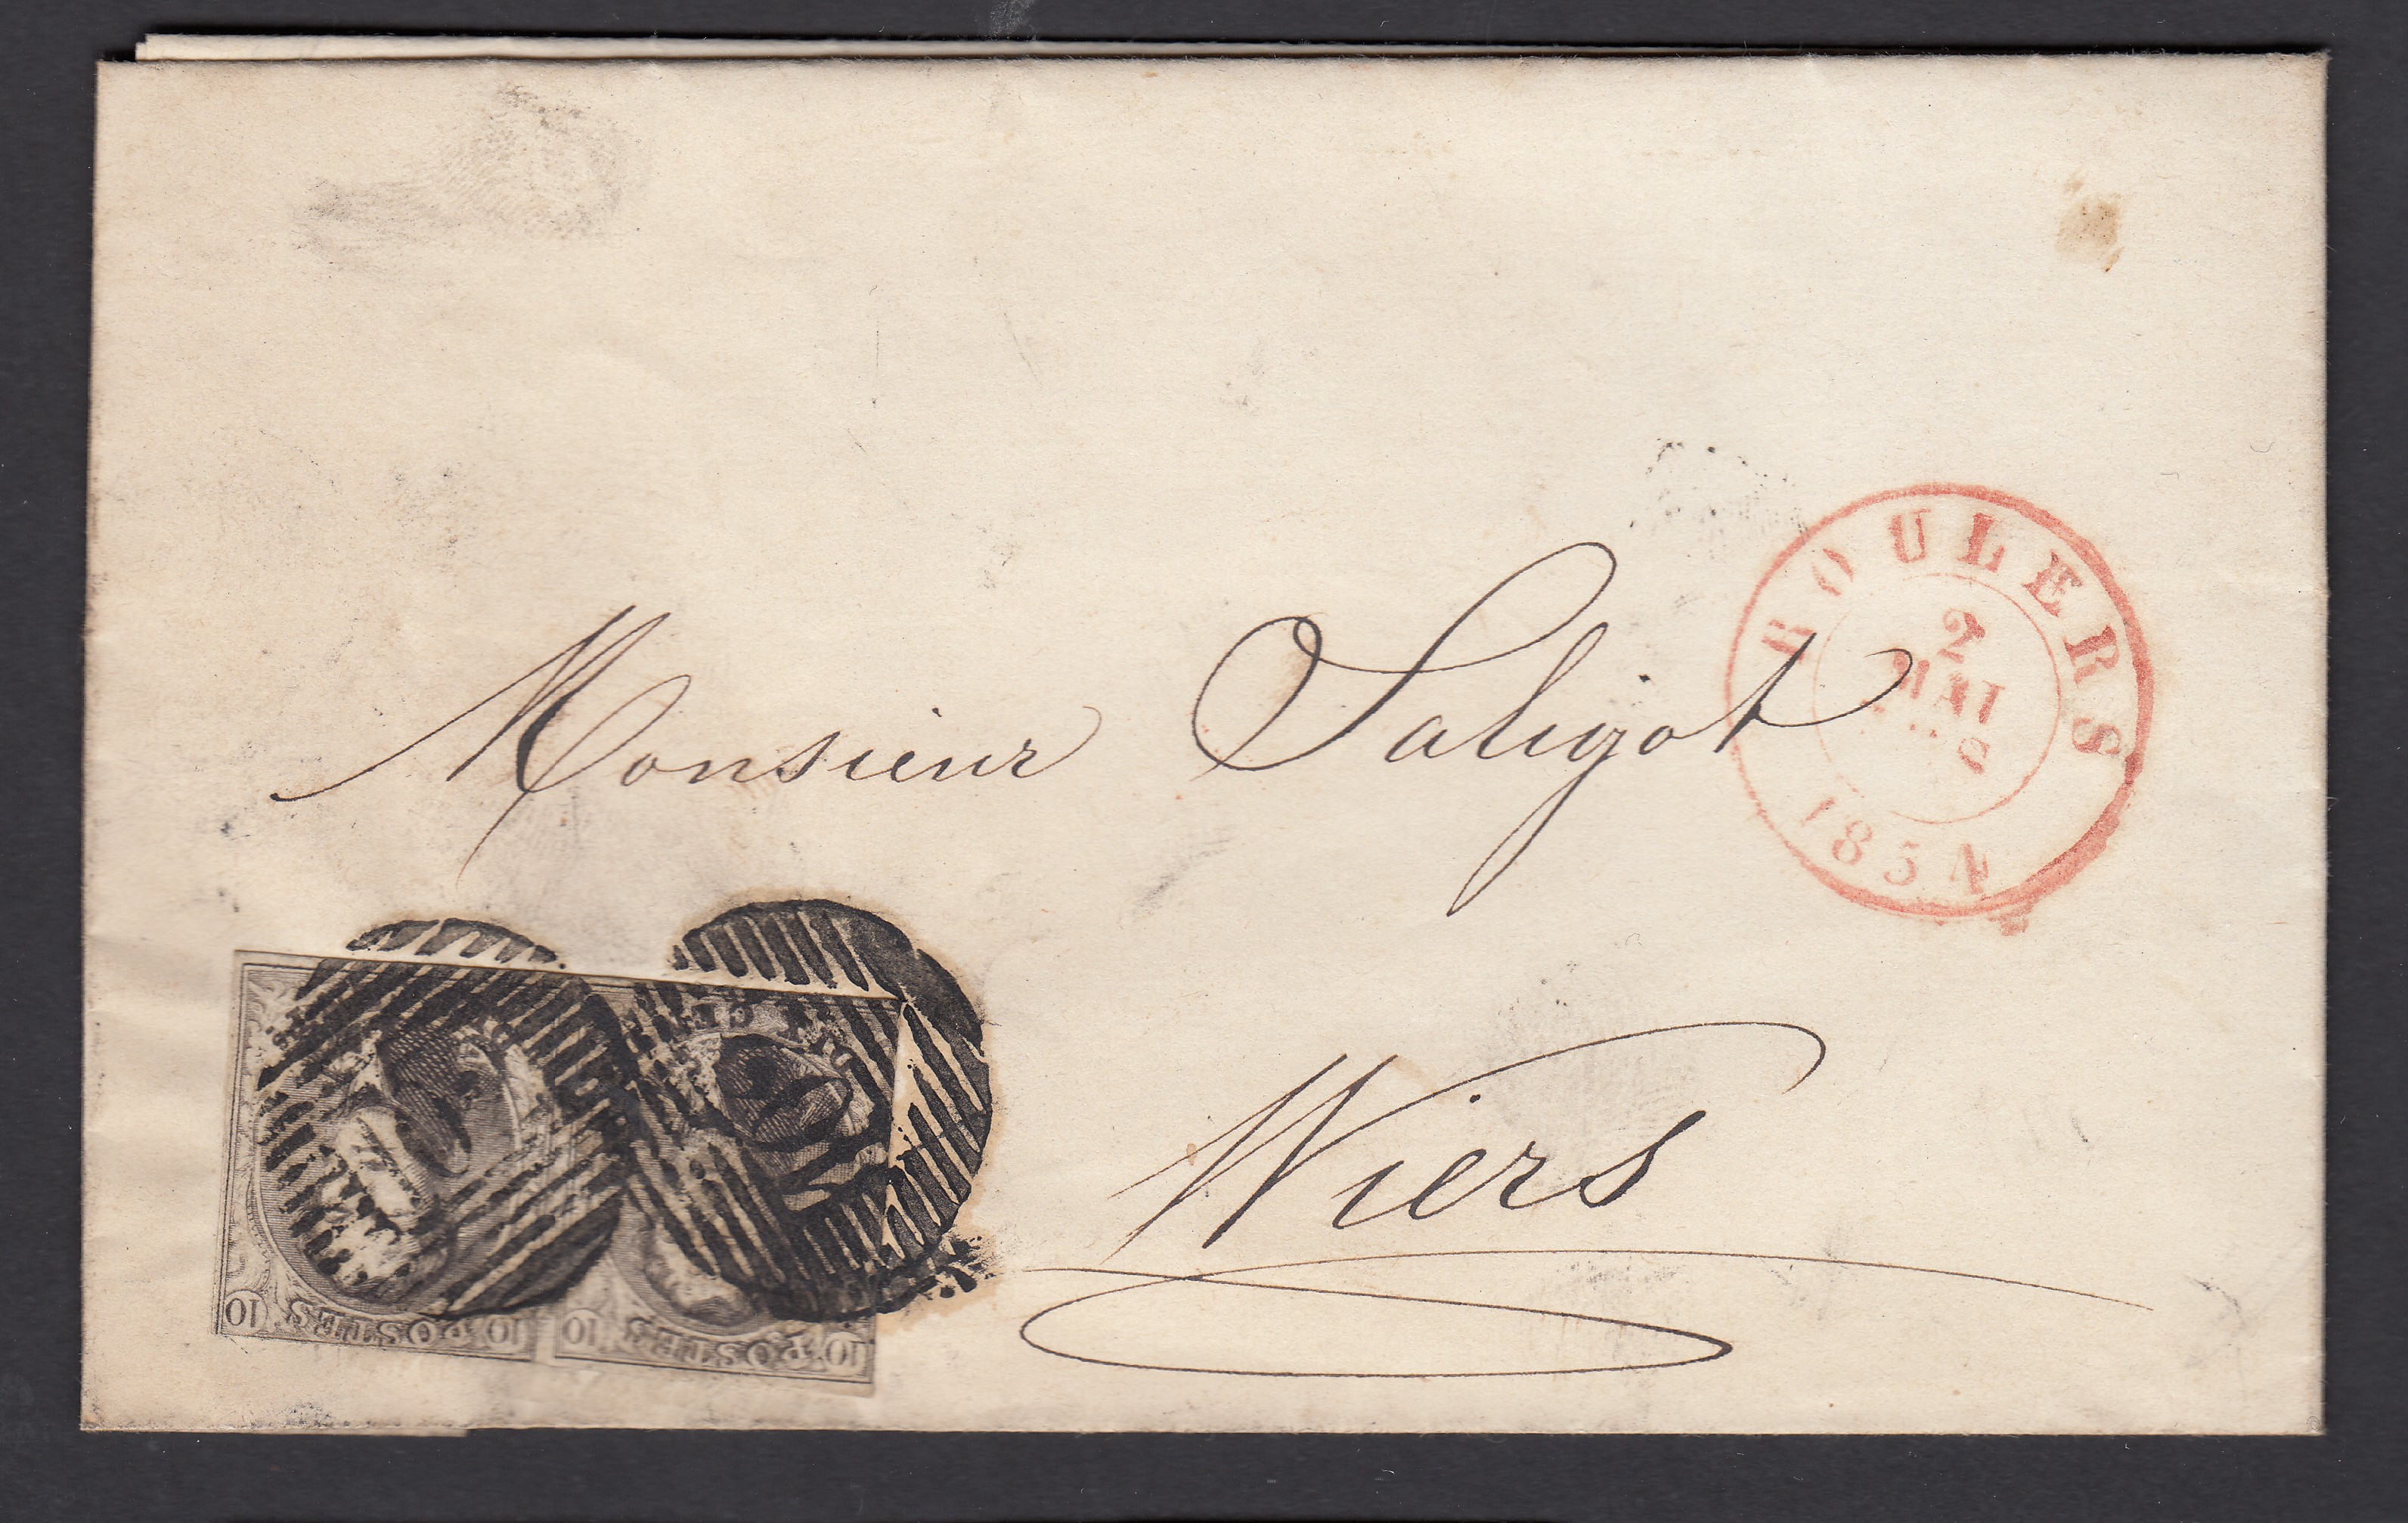 Monsieur Saligot
Wiers
ROULERS
2
MAI
1854
10 POSTES 10
10 POSTES 10